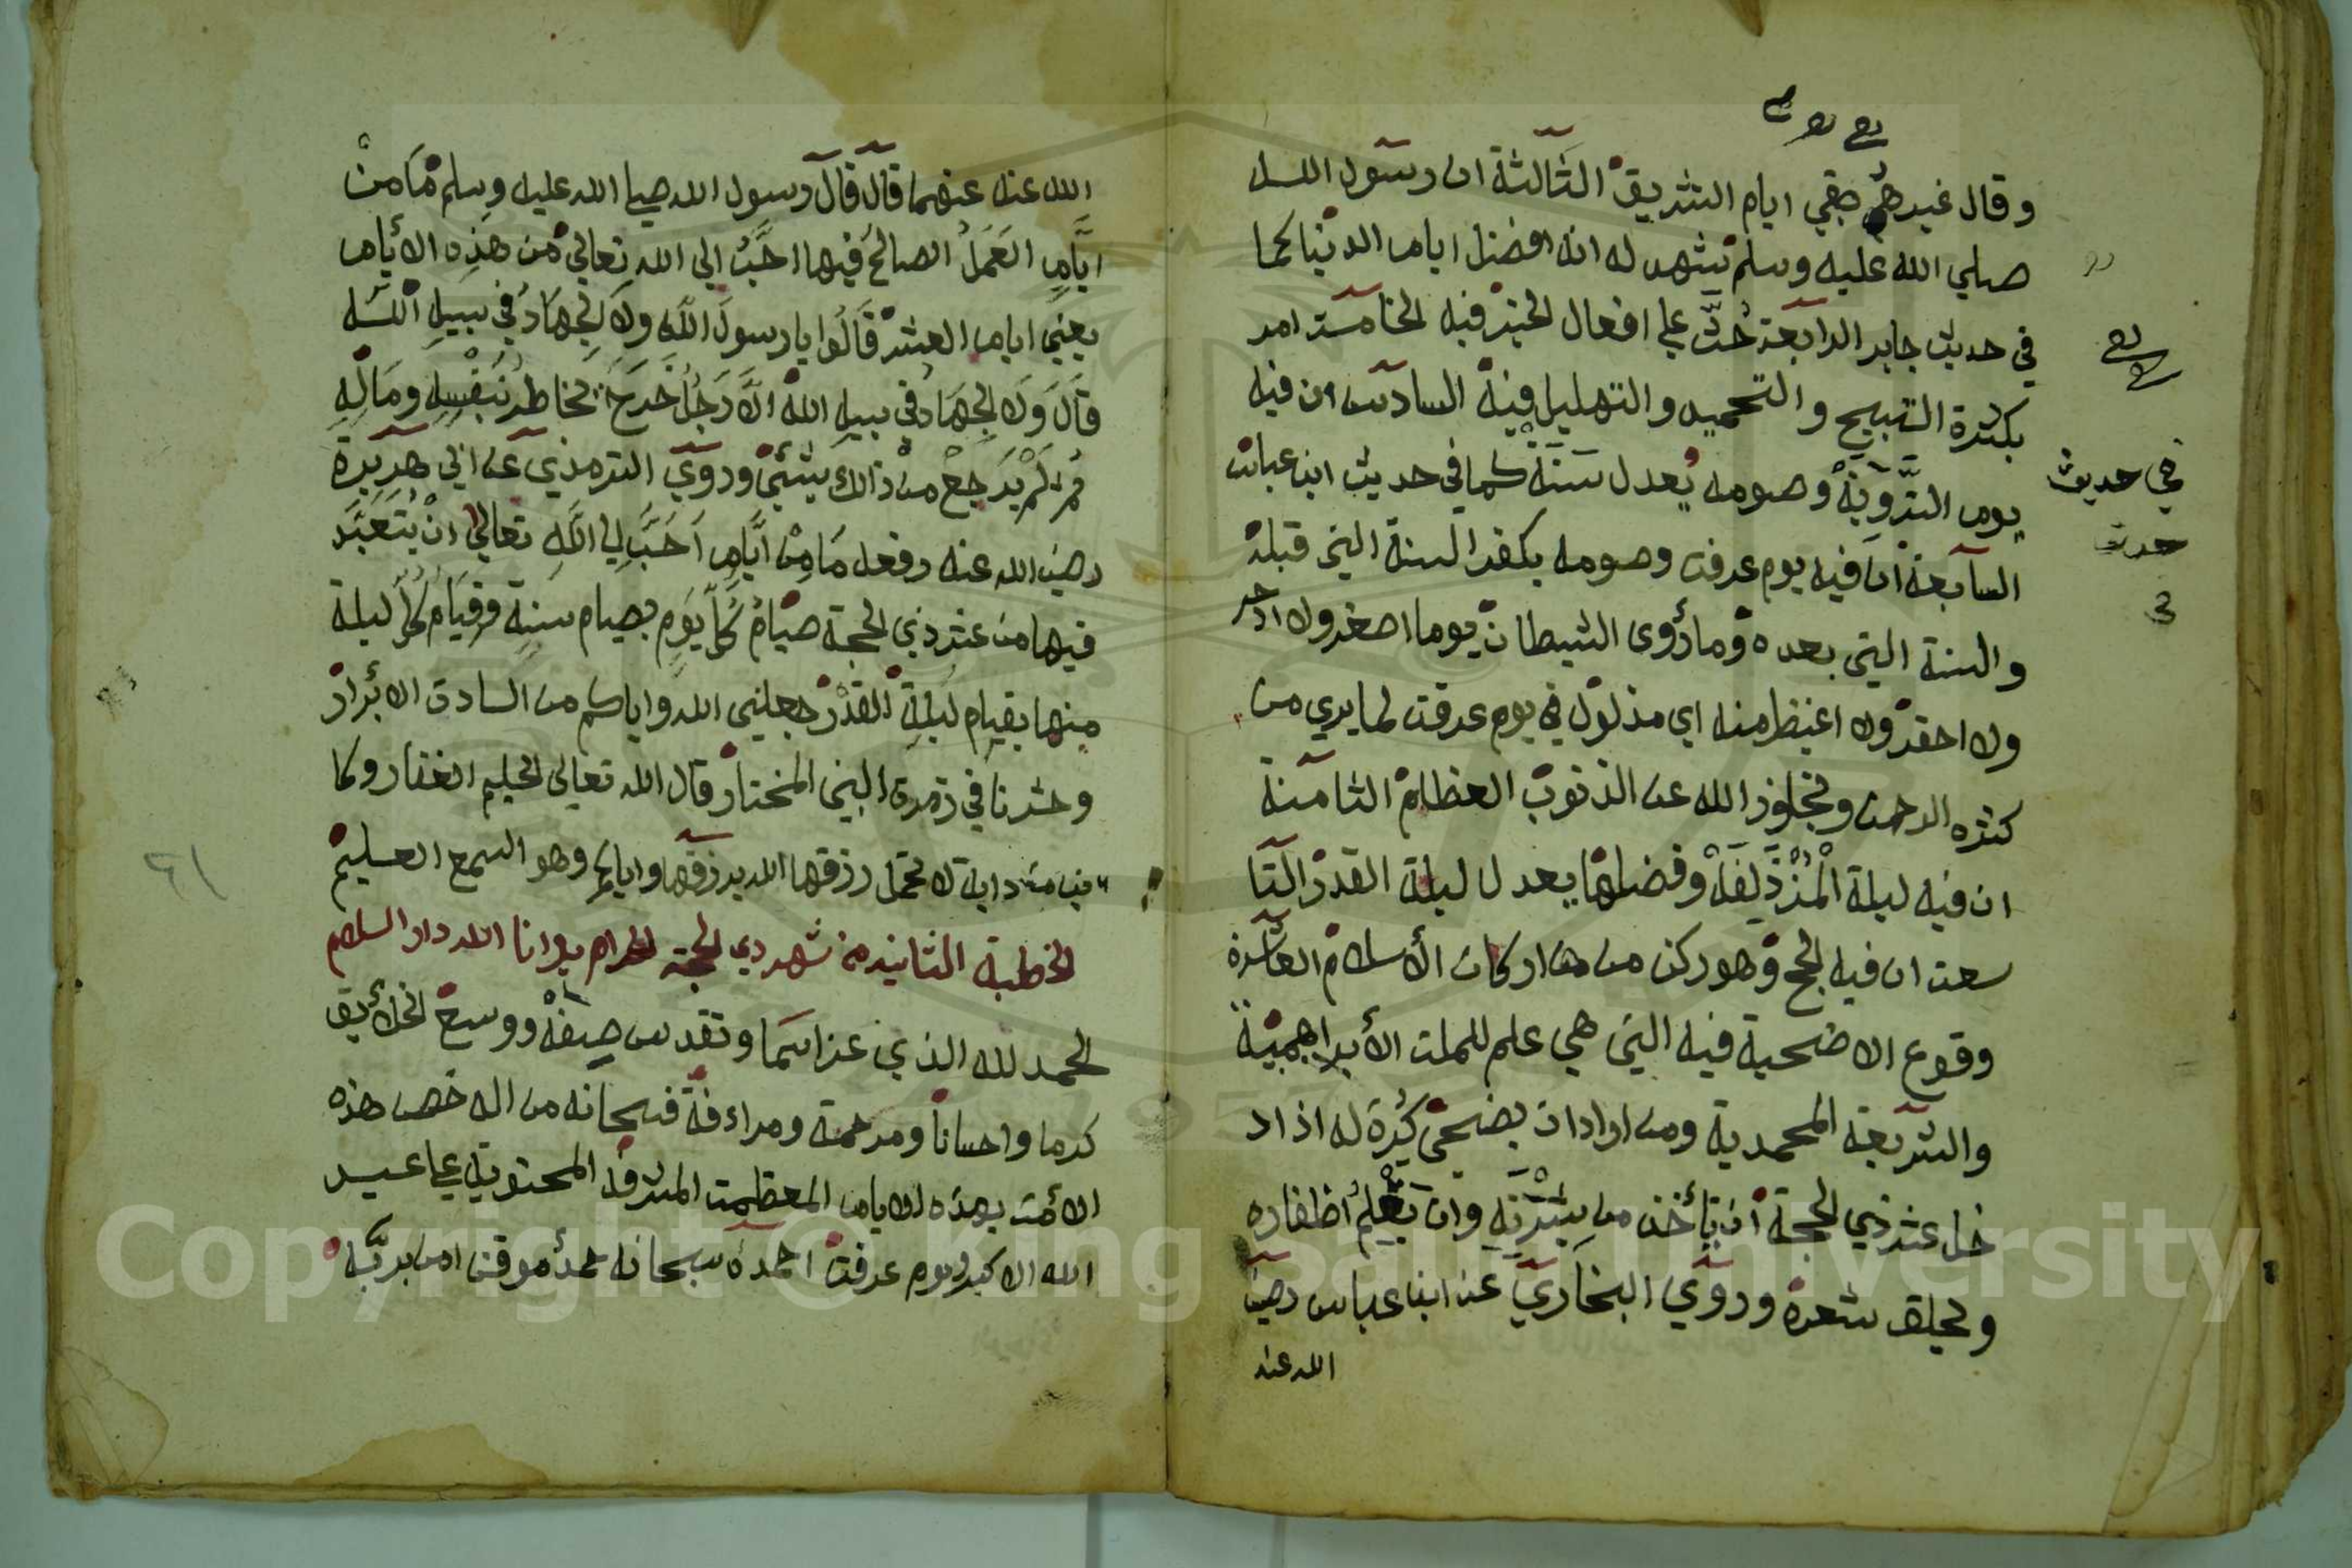 وقال غيرهم هي ايام التشريق الثالثة ان رسول الله
صلي الله عليه وسلم شهد له انه افضل ايام الدنيا كما
في حديث جابر الرابعة حث علي افعال الخير فيه الخامسة امر
بكثرة التسبيح والتحميد والتهليل فيه السادس ان فيه
يوم التروية وصومه يعدل سنة كما في حديث ابن عباس
السابعة ان فيه يوم عرفت وصومه يكفر السنة التي قبله
والسنة التي بعده وما رؤى الشيطان يوما اصغر ولا ادحر
ولا احقر ولا اغيظ منه اي مذلول في يوم عرفت لما يري من
كثره الرحمن وتجاوز الله عن الذنوب العظام الثامنة
ان فيه ليلة المزذلفة وفضلها يعدل ليلة القدر التا
سعت ان فيه الحج وهو ركن من اركان الأسلام العاشرة
وقوع الاضحية فيه التي هي علم للملت الأبراهمية
والشريعة المحمدية ومن اراد ان يضحي كره له اذا د
خل عشر ذي الحجة ان يأخذ من بشرته وان يقلم اظفاره
ولحلق شعره وروي البخاري عن ابن عباس رضي
الله عنه
في حديث
حدث
الله عنه عنهما قال قال رسول الله صلي الله عليه وسلم ما من
ايام العمل الصالح فيها احب الي الله تعالي من هذه الأيام
يعني ايام العشر قالوا يا رسول الله ولا الجهاد في سبيل الله
قال ولا الجهاد في سبيل الله الا رجل خرج يخاطر بنفسه وماله
ثم لم يرجع من ذالك بشئ وروي الترمذي عن ابي هريرة
رضي الله عنه رفعه ما من ايام احب الي الله تعالي ان يتعبد
فيها من عشر ذي الحجة صيام كل يوم بصيام سنة وقيام كل ليلة
منها بقيام ليلة القدر جعلني الله واياكم من السادة الابرار
وحشرنا في زمرة النبي المختار قال الله تعالى الحليم الغفار وكا
ين من داية لا تحمل رزقها الله يرزقها واياكم وهو السمع العليم
الخطبة الثانية من شهر دي الحجة الحرام بوانا الله دار السلام
الحمد لله الذي عز اسما وتقدس صفة ووسع الخلأيق
كرما واحسانا ومرحمة ومراءفة فسبحانه من اله خص هذه
الأمت بهذه الايام المعظمت المشرفة المحتوية علي عيد
الله الاكبر ويوم عرفت احمده سبحانه حمد موقن امن بربه
٦١